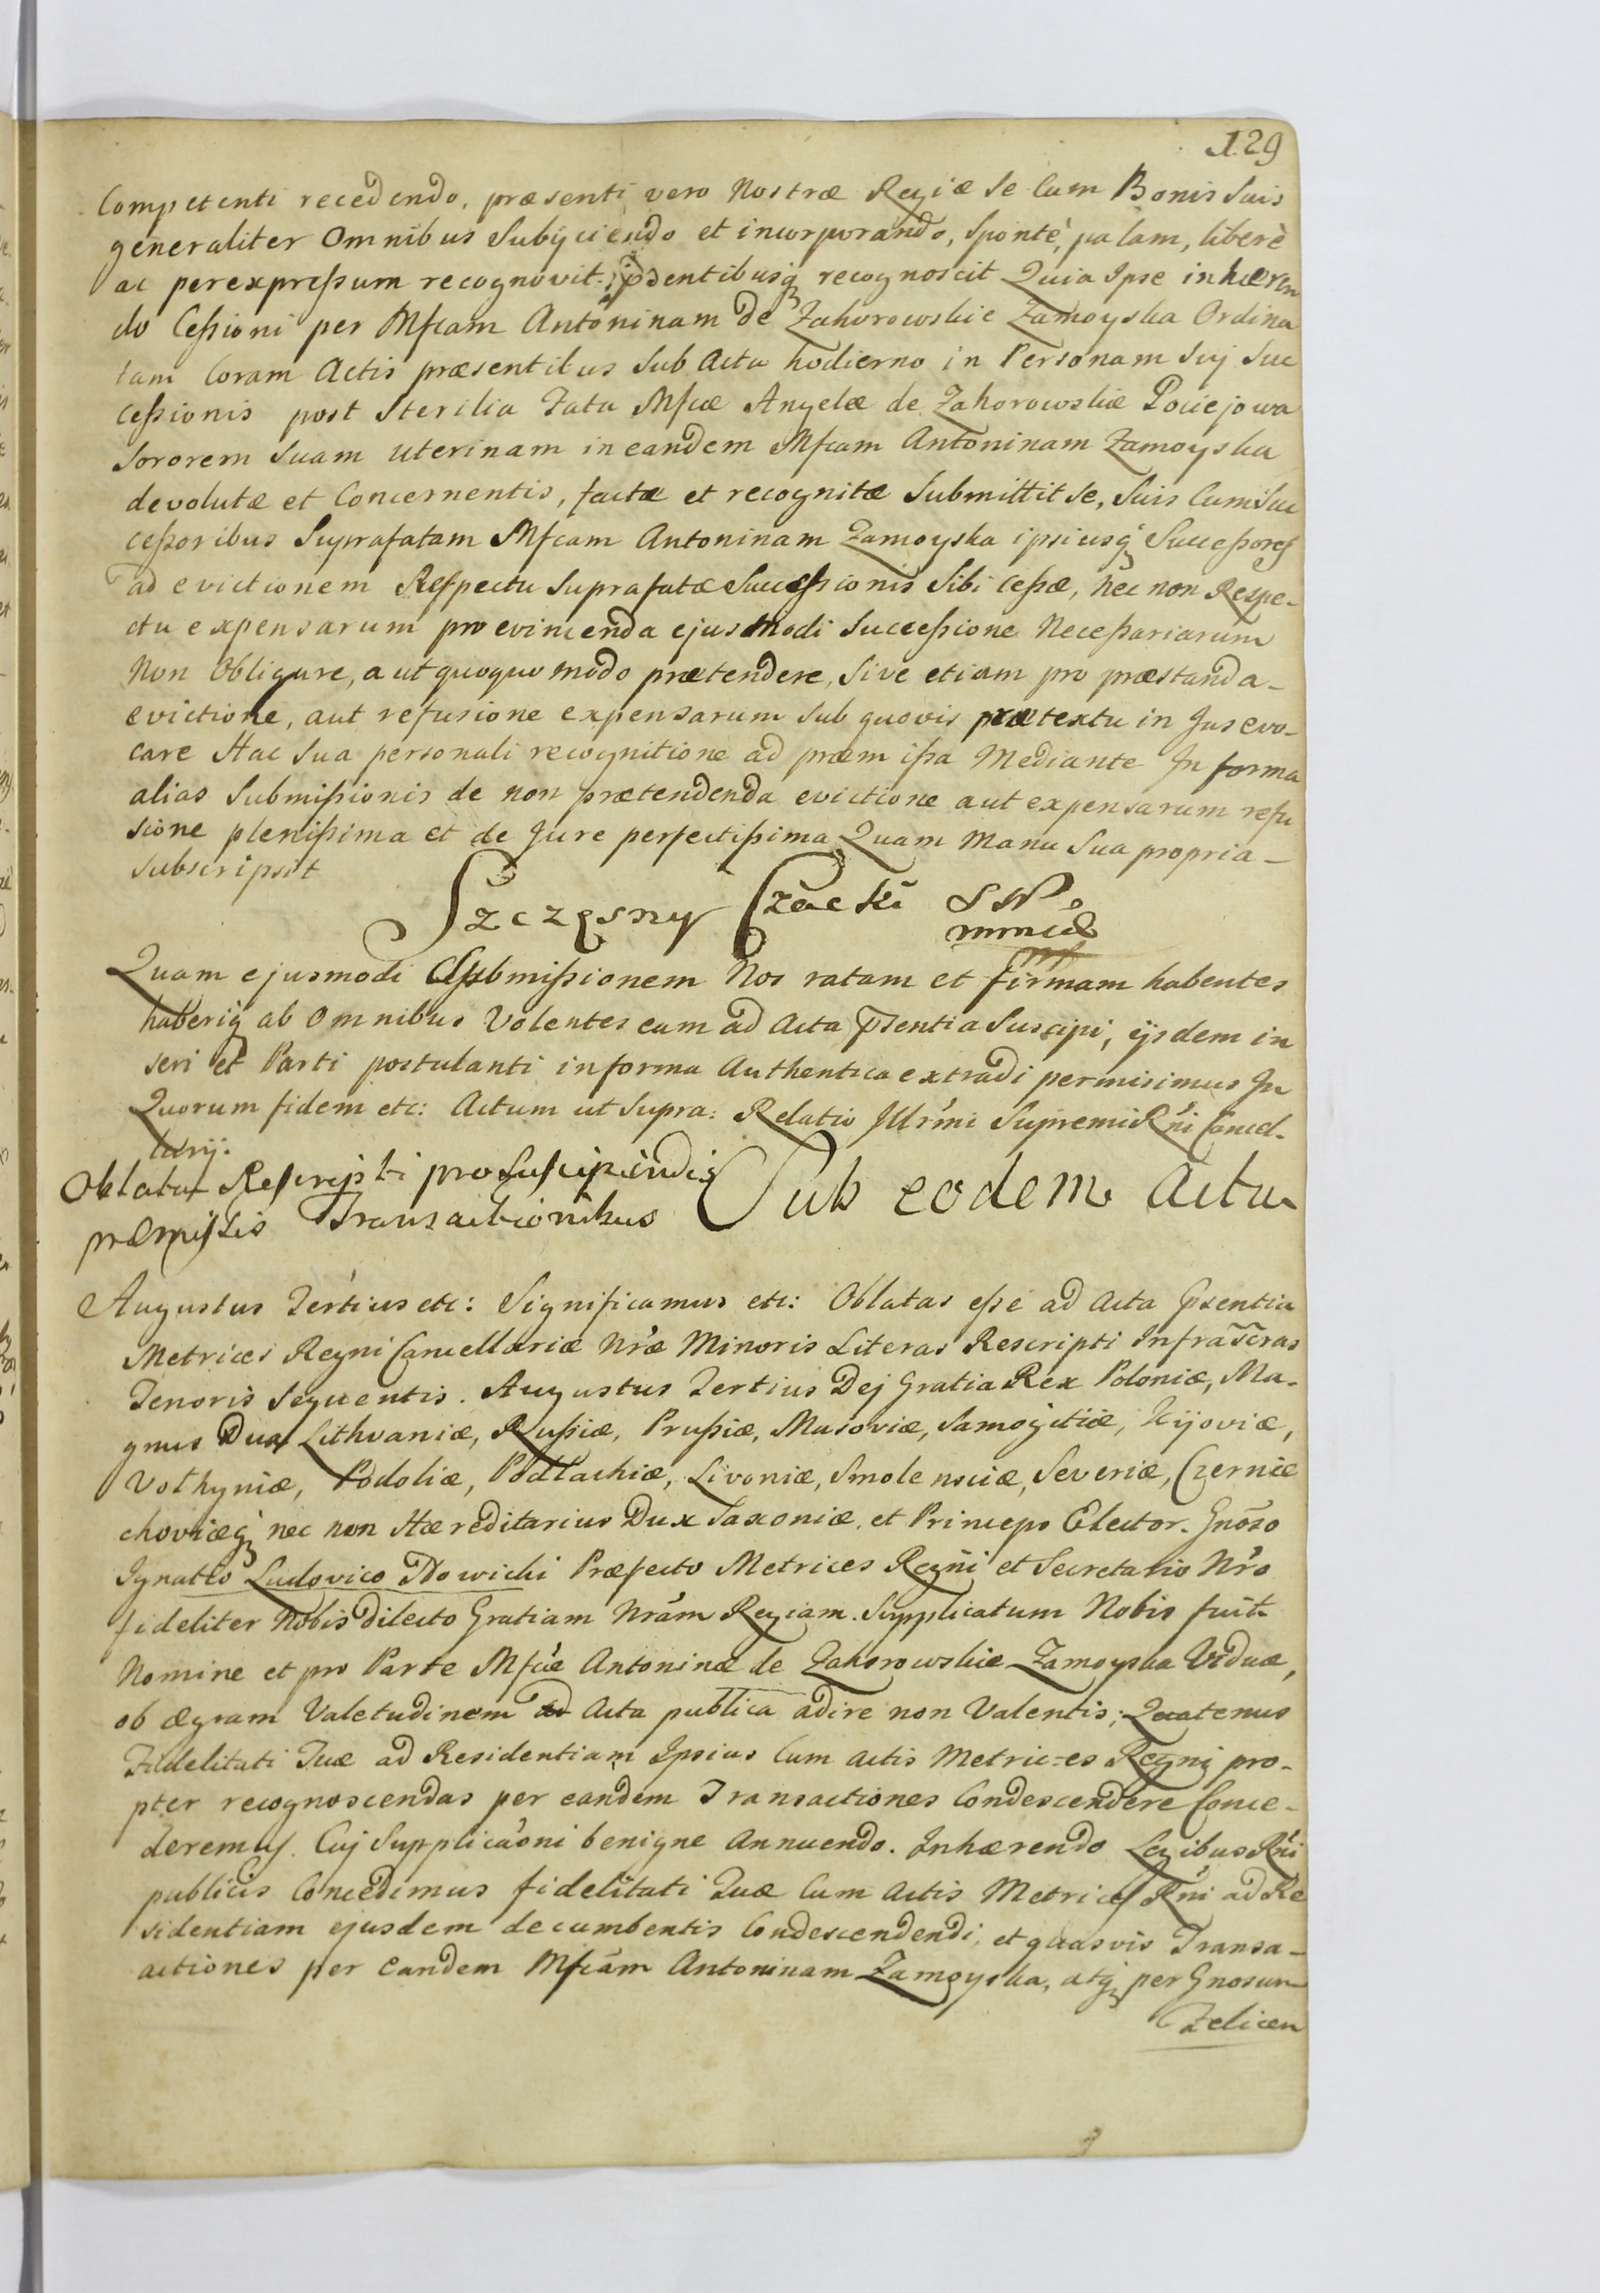 129
Competenti recedendo, præsenti vero Nostræ Regiæ se Cum Bonis Suis
generaliter Omnibus Subÿciendo et incorporando, Spontè, palam, liberè
ac perexpreßum recognovit, pśentibusq recognoscit Quia Ipse inhæren
do Ceßioni per Mfcam Antoninam de Zahorowskie Zamoyska Ordina
tam Coram Actis præsentibus Sub Actu hodierno in Personam Suj Suc
ceßionis post Sterilia Fata Mfcæ Angelæ de Zahorowskie Pociejowa
Sororem Suam Uterinam in eandem Mfcam Antoninam Zamoyska
devolutæ et Concernentis, factæ et recognitæ Submittit se, Suis Cum Suc
ceßoribus Suprafatam Mfcam Antoninam Zamoyska ipsiusq Succeßores
ad evictionem Respectu Suprafatæ Successionis Sibi Ceßæ, nec non Respe-
ctu expensarum pro evincenda ejusmodi Succeßione Neceßariarum
Non Obligare, aut quoquo modo prætendere, Sive etiam pro præstanda-
evictione, aut refusione expensarum Sub quovis prætextu in Jus evo-
care Hac Sua personali recognitione ad præm ißa Mediante In forma
alias Submißionis de non prætendenda evictione aut expensarum refu
sione plenißima et de Jure perfectißima Quam Manu Sua propria-
Subscripsit
Szczęsny Czacki
Quam ejusmodi Submißionem Nos ratam et firmam habentes
haberiq ab Omnibus Volentes eam ad Acta pśentia Suscipi, ÿsdem in
seri et Parti postulanti in forma Authentica extradi permisimus In
Quorum fidem etc: Actum ut Supra: Relatio Jllrm̃i Supremi Rńi Cancel-
larÿ.
Oblata Rescripti pro Suscipiendis
præmissis Transactionibus
Sub eodem Actu
Augustus Tertius etc: Significamus etc: Oblatas eße ad Acta pśentia
Metrices Regni Cancellariæ Nr̃æ Minoris Literas Rescripti Infrascras
Tenoris Sequentis. Augustus Tertius Dej Gratia Rex Poloniæ, Ma-
gnus Dux Lithvaniæ, Rußiæ, Prußiæ, Masoviæ, Samogitiæ, Kijoviæ,
Volhyniæ, Podoliæ, Podlachiæ, Livoniæ, Smolensciæ, Severiæ, Czernie
choviæq nec non Hæreditarius Dux Saxoniæ, et Princeps Elector. Gnõso
Ignatio Ludovico Nowicki Præfecto Metrices Regñi et Secretario Nr̃o
fideliter Nobis dilecto Gratiam Nrãm Regiam. Supplicatum Nobis fuit
Nomine et pro Parte Mfcæ Antoninæ de Zahorowskie Zamoyska Viduæ,
ob ægram Valetudinem ad Acta publica adire non Valentis; Quatenus
Fidelitati Tuæ ad Residentiam Ipsius Cum Actis Metrices Regni pro-
pter recognoscendas per eandem Transactiones Condescendere Conce-
deremus. Cuj Supplicaõni benigne Annuendo. Inhærendo Legibus Rńi
publicis Concedimus fidelitati Tuæ Cum Actis Metrices Rńi ad Re
sidentiam ejusdem decumbentis Condescendendi, et quasvis Transa-
actiones per Eandem Mfcãm Antoninam Zamoyska, atq per Gnosum
Felicem